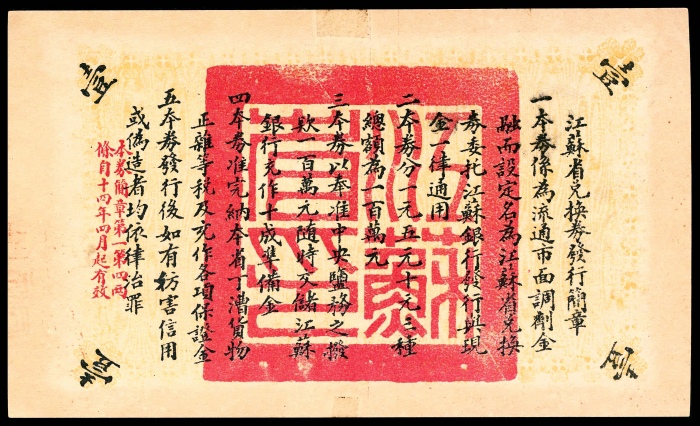 江蘇省兌換券發行簡章
一本券係為流通市面調劑金
融而設定名為江蘇省兌換
券委托江蘇銀行發行與現
金一律通用
二本券分一元五元十元三種
總額為一百萬元
三本券以奉准中央鹽務之撥
欵一百萬元隨時交儲江蘇
銀行充作十成準備金
四本券准完納本省丁漕貨物
正雜等稅及充作各項保證金
五本券發行後如有妨害信用
或偽造者均依律治罪
本券簡章第一第四兩
條自十四年四月起有效